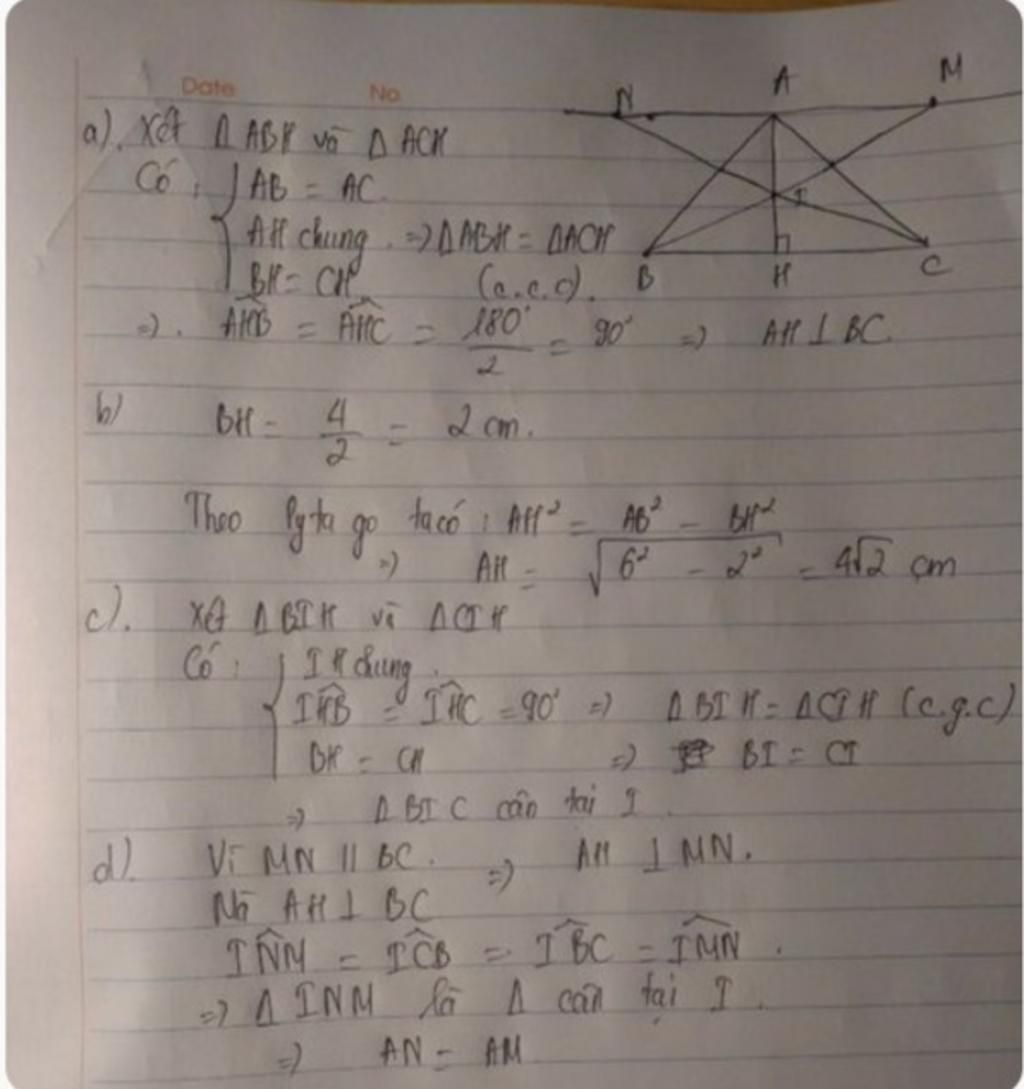 Date No
N A M
a). Xét Δ ABH và Δ ACH
Có : AB = AC.
I
AH chung => ΔABH = ΔACH
BH = CH (c.c.c).
B H C
=). AHB = AHC = 180°/2 = 90° => AH ⊥ BC.
b) BH = 4/2 = 2 cm.
Theo Pytago ta có : AH² = AB² - BH²
=> AH = √6² - 2² = 4√2 cm
c). Xét Δ BIH và Δ CIH
Có : IH chung.
IHB = IHC = 90° => Δ BIH = Δ CIH (c.g.c)
BH = CH => BI = CI
=> Δ BIC cân tại I.
d). Vì MN || BC. => AH ⊥ MN.
Mà AH ⊥ BC
INM = ICB = IBC = IMN.
=> Δ INM là Δ cân tại I.
=> AN = AM